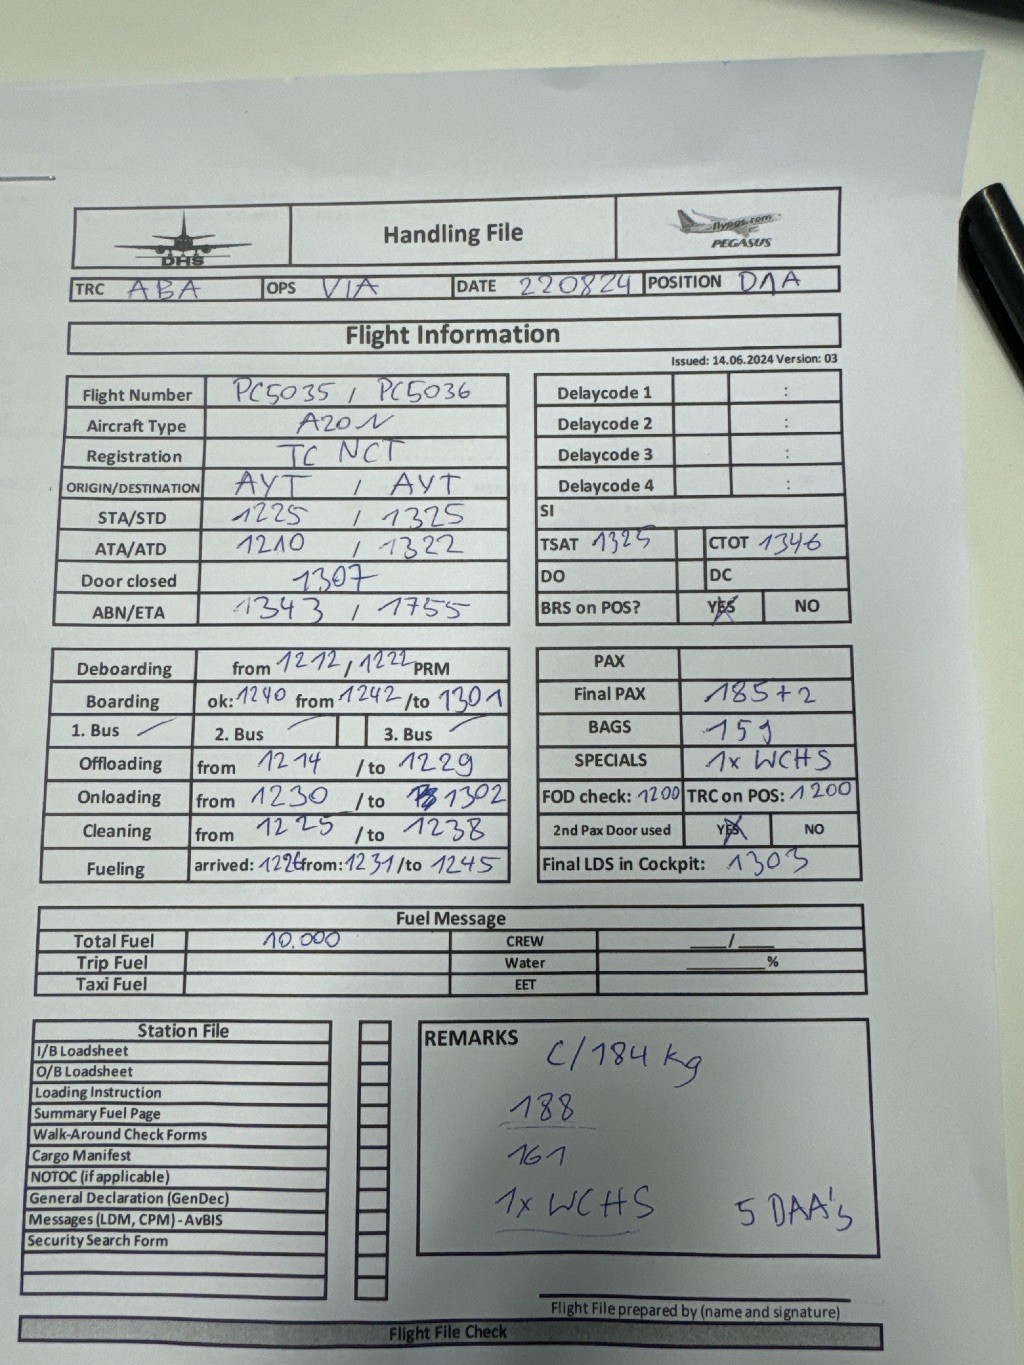 DHS
Handling File
flypgs.com
PEGASUS
TRC ABA OPS VIA DATE 220824 POSITION D11A
Flight Information
Issued: 14.06.2024 Version: 03
Flight Number PC5035 / PC5036
Aircraft Type A20N
Registration TC NCT
ORIGIN/DESTINATION AYT / AYT
STA/STD 1225 / 1325
ATA/ATD 1210 / 1322
Door closed 1307
ABN/ETA 1343 / 1755
Delaycode 1 :
Delaycode 2 :
Delaycode 3 :
Delaycode 4 :
SI
TSAT 1325 CTOT 1346
DO DC
BRS on POS? YES NO
Deboarding from 1212 / 1222 PRM
Boarding ok: 1240 from 1242 /to 1301
1. Bus 2. Bus 3. Bus
Offloading from 1214 /to 1229
Onloading from 1230 /to 1302
Cleaning from 1225 /to 1238
Fueling arrived: 1226 from: 1231 /to 1245
PAX
Final PAX 185+2
BAGS 159
SPECIALS 1x WCHS
FOD check: 1200 TRC on POS: 1200
2nd Pax Door used YES NO
Final LDS in Cockpit: 1303
Fuel Message
Total Fuel 10.000 CREW ____/____
Trip Fuel Water ________%
Taxi Fuel EET
Station File
I/B Loadsheet
O/B Loadsheet
Loading Instruction
Summary Fuel Page
Walk-Around Check Forms
Cargo Manifest
NOTOC (if applicable)
General Declaration (GenDec)
Messages (LDM, CPM) - AvBIS
Security Search Form
REMARKS
C/184 kg
188
161
1x WCHS
5 DAA's
Flight File prepared by (name and signature)
Flight File Check